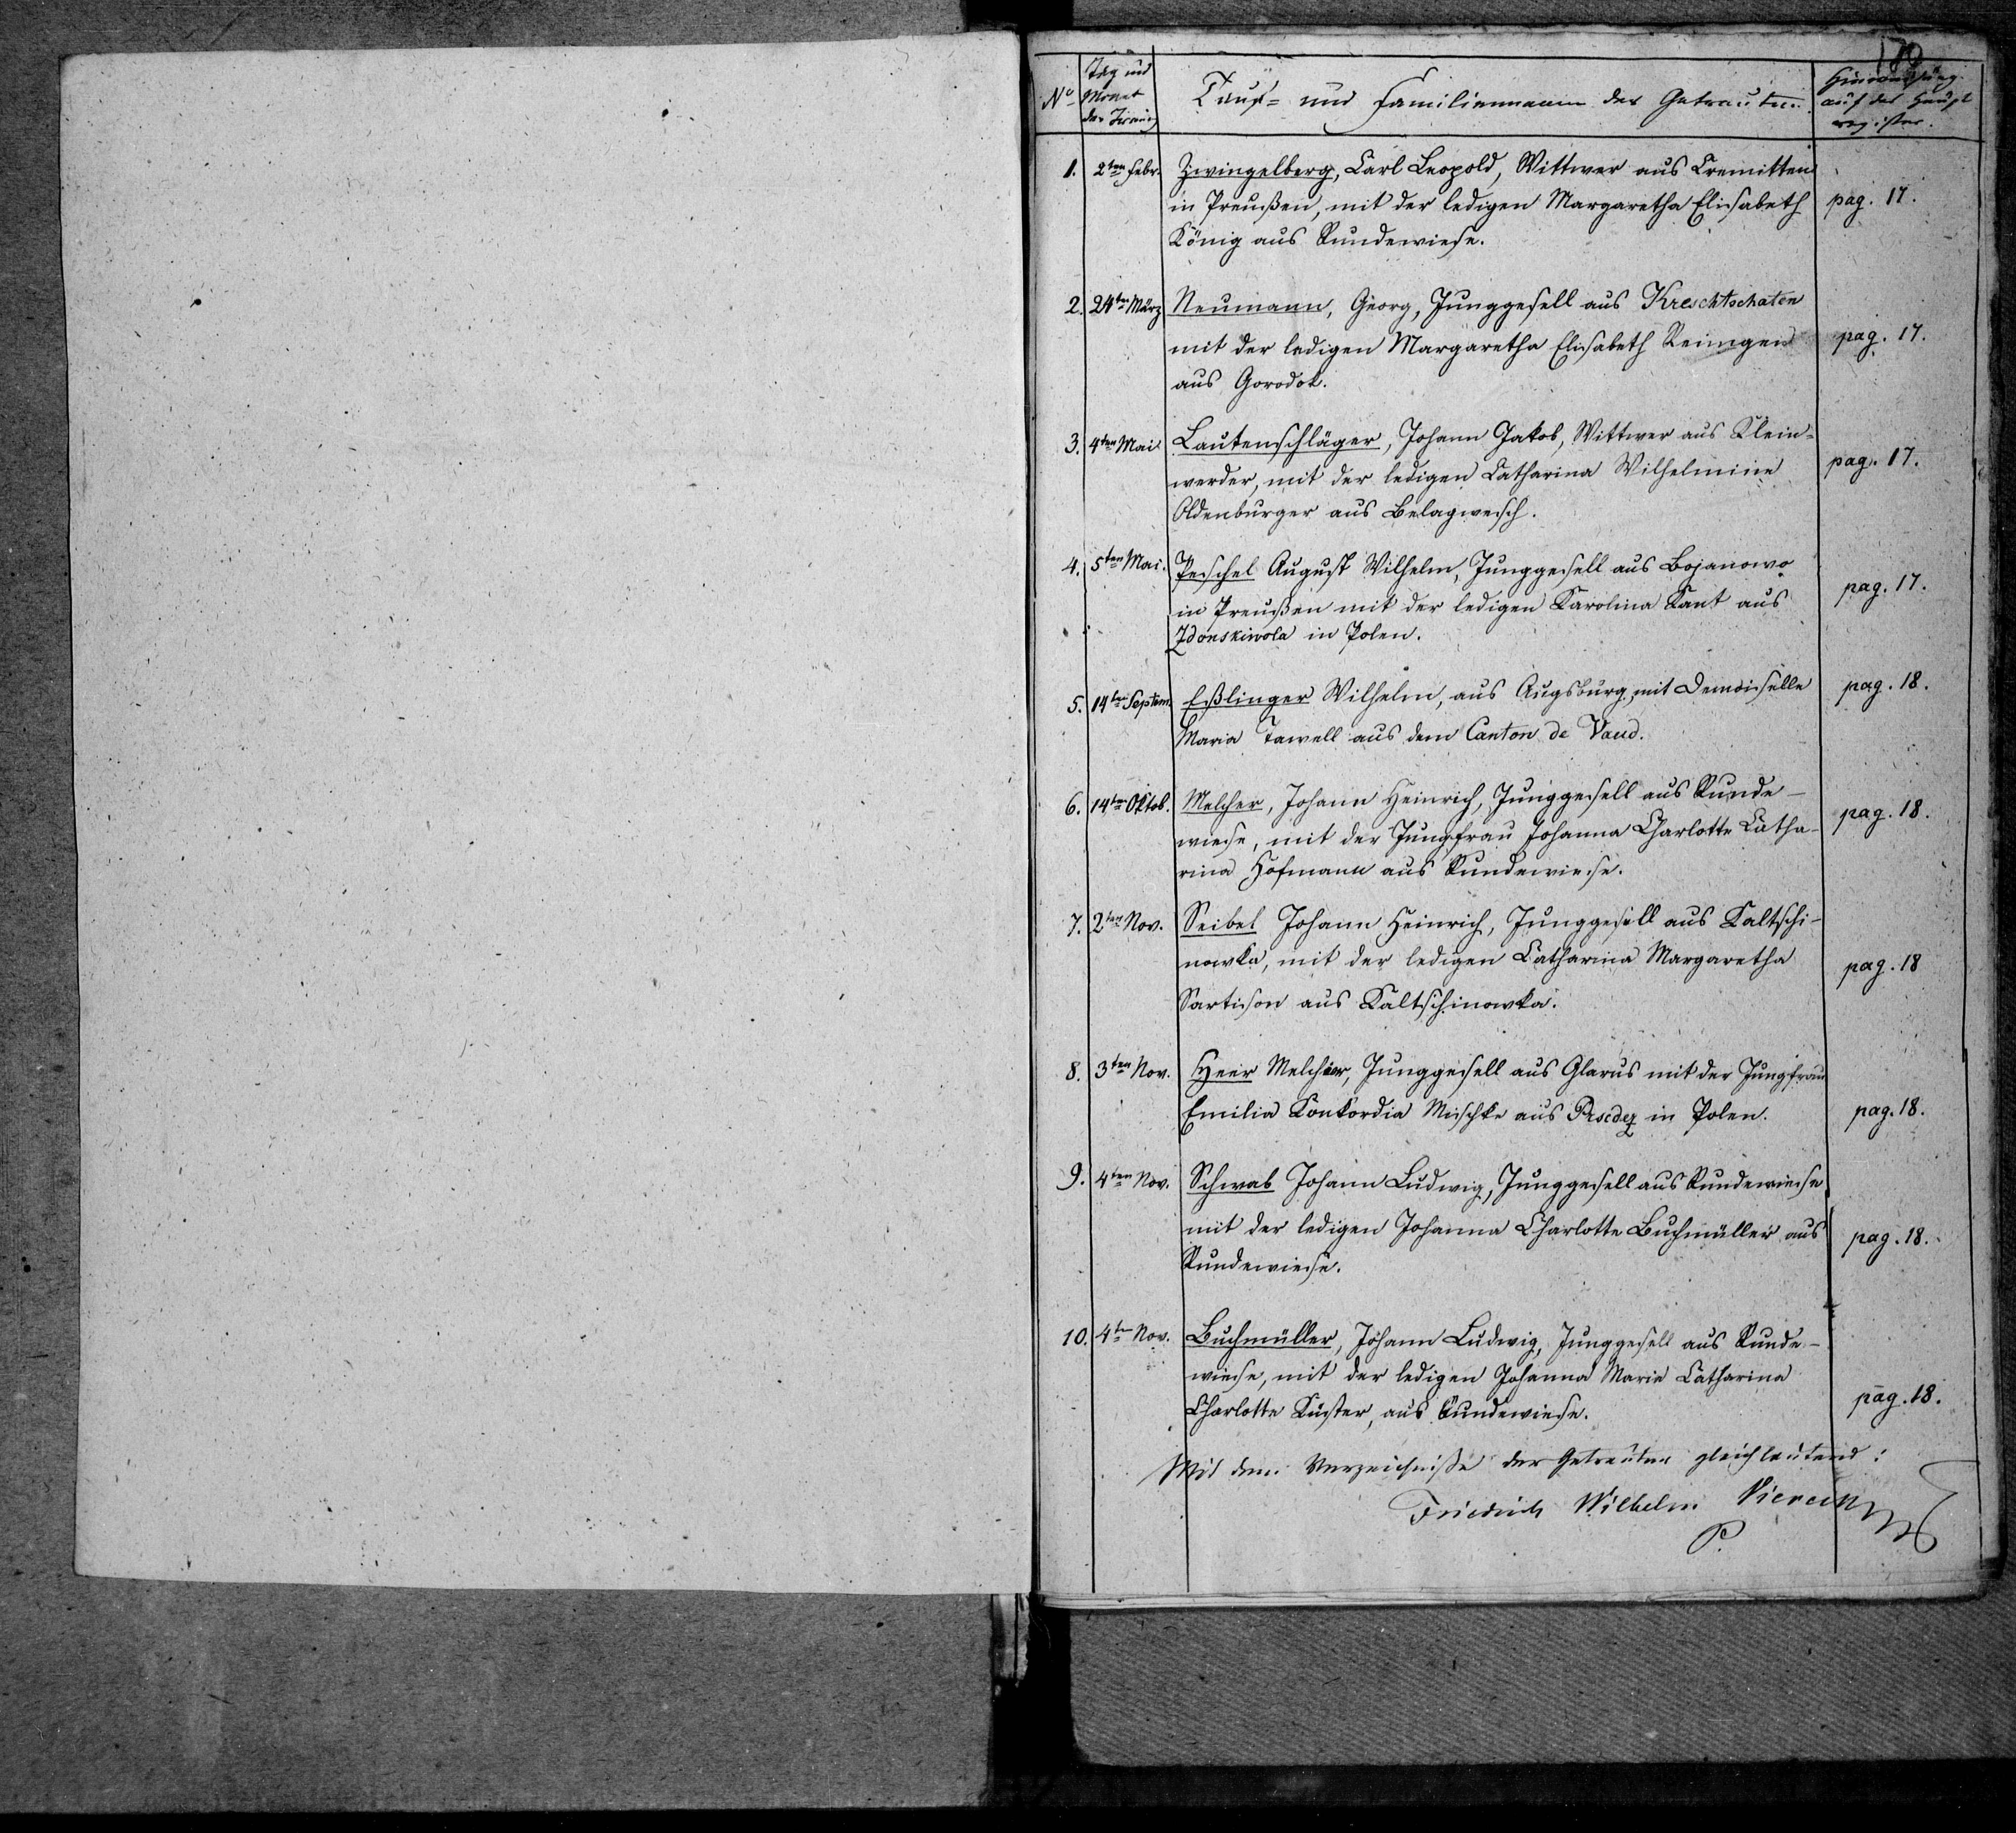 180
No Tag und Monat der Trauung Tauf- und Familiennamen der Getrauten. Hinweisung auf das Hauptregister.
1. 2ten Febr. Zwingelberg, Carl Leopold, Wittwer aus Cremitten
in Preußen, mit der ledigen Margaretha Elisabeth pag. 17.
König aus Rundewiese.
2. 24ten März Neumann, Georg, Junggesell aus Kreschtschaten
mit der ledigen Margaretha Elisabeth Reimgen pag. 17.
aus Gorodok.
3. 4ten Mai Lautenschläger, Johann Jakob, Wittwer aus Klein-
werder, mit der ledigen Catharina Wilhelmine pag. 17.
Oldenburger aus Belagwesch.
4. 5ten Mai. Peschel August Wilhelm, Junggesell aus Bojanowo
in Preußen mit der ledigen Karolina Kant aus pag. 17.
Zdonskiwola in Polen.
5. 14ten Septem. Eßlinger Wilhelm, aus Augsburg, mit Demoiselle pag. 18.
Maria Tawell aus dem Canton de Vaud.
6. 14ten Oktob. Melcher, Johann Heinrich, Junggesell aus Runde- pag. 18.
wiese, mit der Jungfrau Johanna Charlotte Catha-
rina Hofmann aus Rundewiese.
7. 2ten Nov. Seibel Johann Heinrich, Junggesell aus Kaltschi-
nowka, mit der ledigen Catharina Margaretha pag. 18
Sartison aus Kaltschinowka.
8. 3ten Nov. Heer Melchior, Junggesell aus Glarus mit der Jungfrau
Emilia Konkordia Mischke aus in Polen. pag. 18.
9. 4ten Nov. Schwab Johann Ludwig, Junggesell aus Rundewiese
mit der ledigen Johanna Charlotte Buchmüller aus pag. 18.
Rundewiese.
10. 4ten Nov. Buchmüller, Johann Ludwig, Junggesell aus Runde-
wiese, mit der ledigen Johanna Maria Catharina
Charlotte Küster, aus Rundewiese. pag. 18.
Mit dem Verzeichniße der Getrauten gleichlautend:
Friedrich Wilhelm
P.